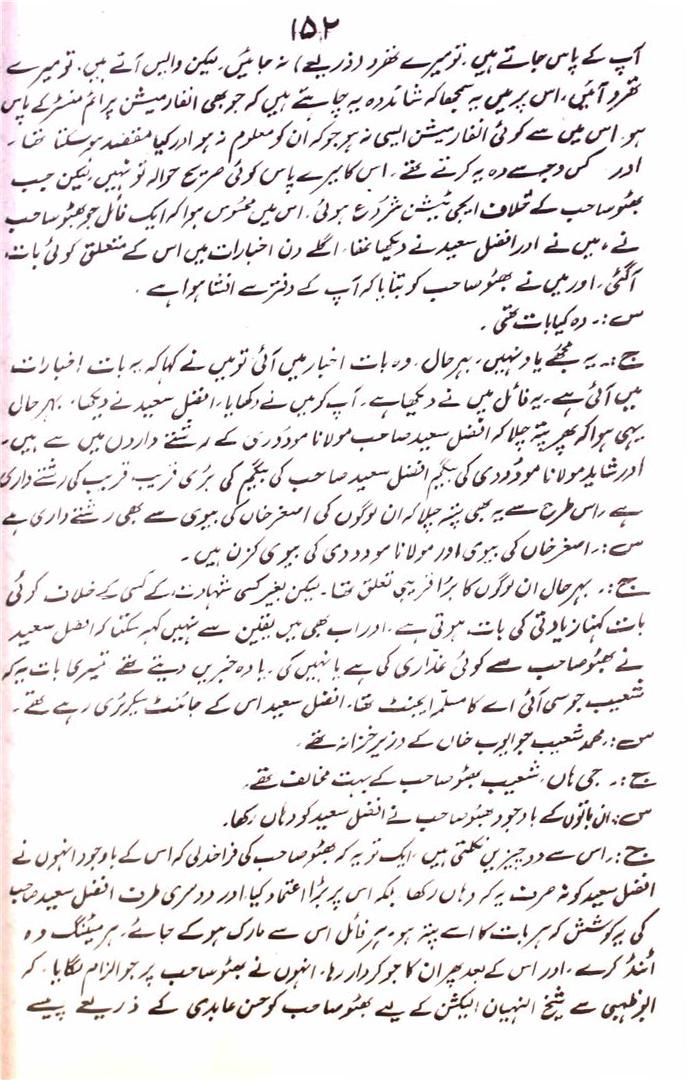 ۱۵۲
آپ کے پاس جاتے ہیں ، تو میرے تھرو (ذریعے) نہ جائیں ، لیکن واپس آتے ہیں ، تو میرے
تھرو آئیں ، اس پر میں یہ سمجھا کہ شائد وہ یہ چاہتے ہیں کہ جو بھی انفارمیشن پرائم منسٹر کے پاس
ہو ، اس میں سے کوئی انفارمیشن ایسی نہ ہو جو کہ ان کو معلوم نہ ہو اور کیا مقصد ہو سکتا تھا ۔
اور کس وجہ سے وہ یہ کرتے تھے ۔ اس کا میرے پاس کوئی صریح حوالہ تو نہیں ، لیکن جب
بھٹو صاحب کے خلاف ایجی ٹیشن شروع ہوئی ، اس میں محسوس ہوا کہ ایک فائل جو بھٹو صاحب
نے ، میں نے اور افضل سعید نے دیکھا تھا ، اگلے دن اخبارات میں اس کے متعلق کوئی بات
آگئی ، اور میں نے بھٹو صاحب کو بتایا کہ آپ کے دفتر سے افشا ہوا ہے ۔
س :۔ وہ کیا بات تھی ۔
ج :۔ یہ مجھے یاد نہیں ، بہرحال ، وہ بات اخبار میں آئی تو میں نے کہا کہ یہ بات اخبارات
میں آئی ہے ، یہ فائل میں نے دیکھا ہے ، آپ کو میں نے دکھایا ، افضل سعید نے دیکھا ، بہرحال
یہی ہوا کہ پھر پتہ چلا کہ افضل سعید صاحب مولانا مودودی کے رشتے داروں میں سے ہیں ۔
اور شاید مولانا مودودی کی بیگم افضل سعید صاحب کی بیگم کی بڑی قریب قریب کی رشتے داری
ہے ، اس طرح سے یہ بھی پتہ چلا کہ ان لوگوں کی اصغر خاں کی بیوی سے بھی رشتے داری ہے
س :۔ اصغر خاں کی بیوی اور مولانا مودودی کی بیوی کزن ہیں ۔
ج :۔ بہرحال ان لوگوں کا بڑا قریبی تعلق تھا ۔ لیکن بغیر کسی شہادت کے کسی کے خلاف کوئی
بات کہنا زیادتی کی بات ہوتی ہے ، اور اب بھی میں یقین سے نہیں کہہ سکتا کہ افضل سعید
نے بھٹو صاحب سے کوئی غداری کی ہے یا نہیں کی ، یا وہ خبریں دیتے تھے ، تیسری بات یہ کہ
شعیب جو سی آئی اے کا مسلم ایجنٹ تھا ، افضل سعید اس کے جائنٹ سیکرٹری رہے تھے ۔
س :۔ محمد شعیب جو ایوب خاں کے وزیر خزانہ تھے ۔
ج :۔ جی ہاں ، شعیب بھٹو صاحب کے بہت مخالف تھے ۔
س :۔ ان باتوں کے باوجود بھٹو صاحب نے افضل سعید کو وہاں رکھا ۔
ج :۔ اس سے دو چیزیں نکلتی ہیں ، ایک تو یہ کہ بھٹو صاحب کی فراخدلی کہ اس کے باوجود انہوں نے
افضل سعید کو نہ صرف یہ کہ وہاں رکھا بلکہ اس پر بڑا اعتماد کیا ، اور دوسری طرف افضل سعید صاحب
کی یہ کوشش کہ ہر بات کا اسے پتہ ہو ، ہر فائل اس سے مارک ہو کے جائے ، ہر میٹنگ وہ
اٹنڈ کرے ، اور اس کے بعد پھر ان کا جو کردار رہا ، انہوں نے بھٹو صاحب پر جو الزام لگایا ، کہ
ابوظہبی سے شیخ النہیان الیکشن کے لیے بھٹو صاحب کو حسن عابدی کے ذریعے پیسے